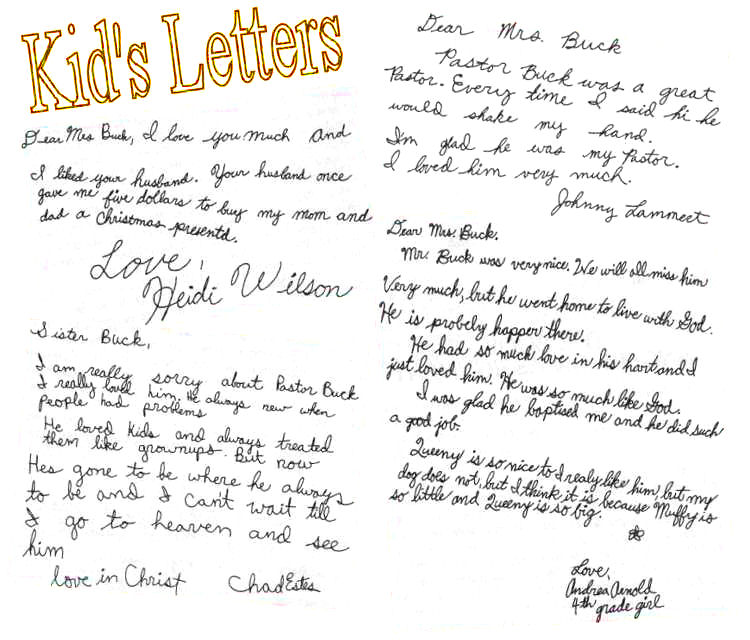 Kid's Letters
Dear Mrs Buck, I love you much and
I liked your husband. Your husband once
gave me five dollars to buy my mom and
dad a Christmas presentd.
Love,
Heidi Wilson
Sister Buck,
I am really sorry about Pastor Buck
I really loved him. He always new when
people had problems
He loved kids and always treated
them like grownups. But now
Hes gone to be where he always
to be and I can't wait till
I go to heaven and see
him
love in Christ Chad Estes
Dear Mrs. Buck
Pastor Buck was a great
Pastor. Every time I said hi he
would shake my hand.
I'm glad he was my Pastor.
I loved him very much.
Johnny Lammert
Dear Mrs. Buck.
Mr. Buck was very nice. We will all miss him
Very much, but he went home to live with God.
He is probely happer there.
He had so much love in his hart and I
just loved him. He was so much like God.
I was glad he baptised me and he did such
a good job.
Queeny is so nice to I realy like him, but my
dog does not, but I think it is because Muffy is
so little and Queeny is so big.
Love,
Andrea Arnold
4th grade girl